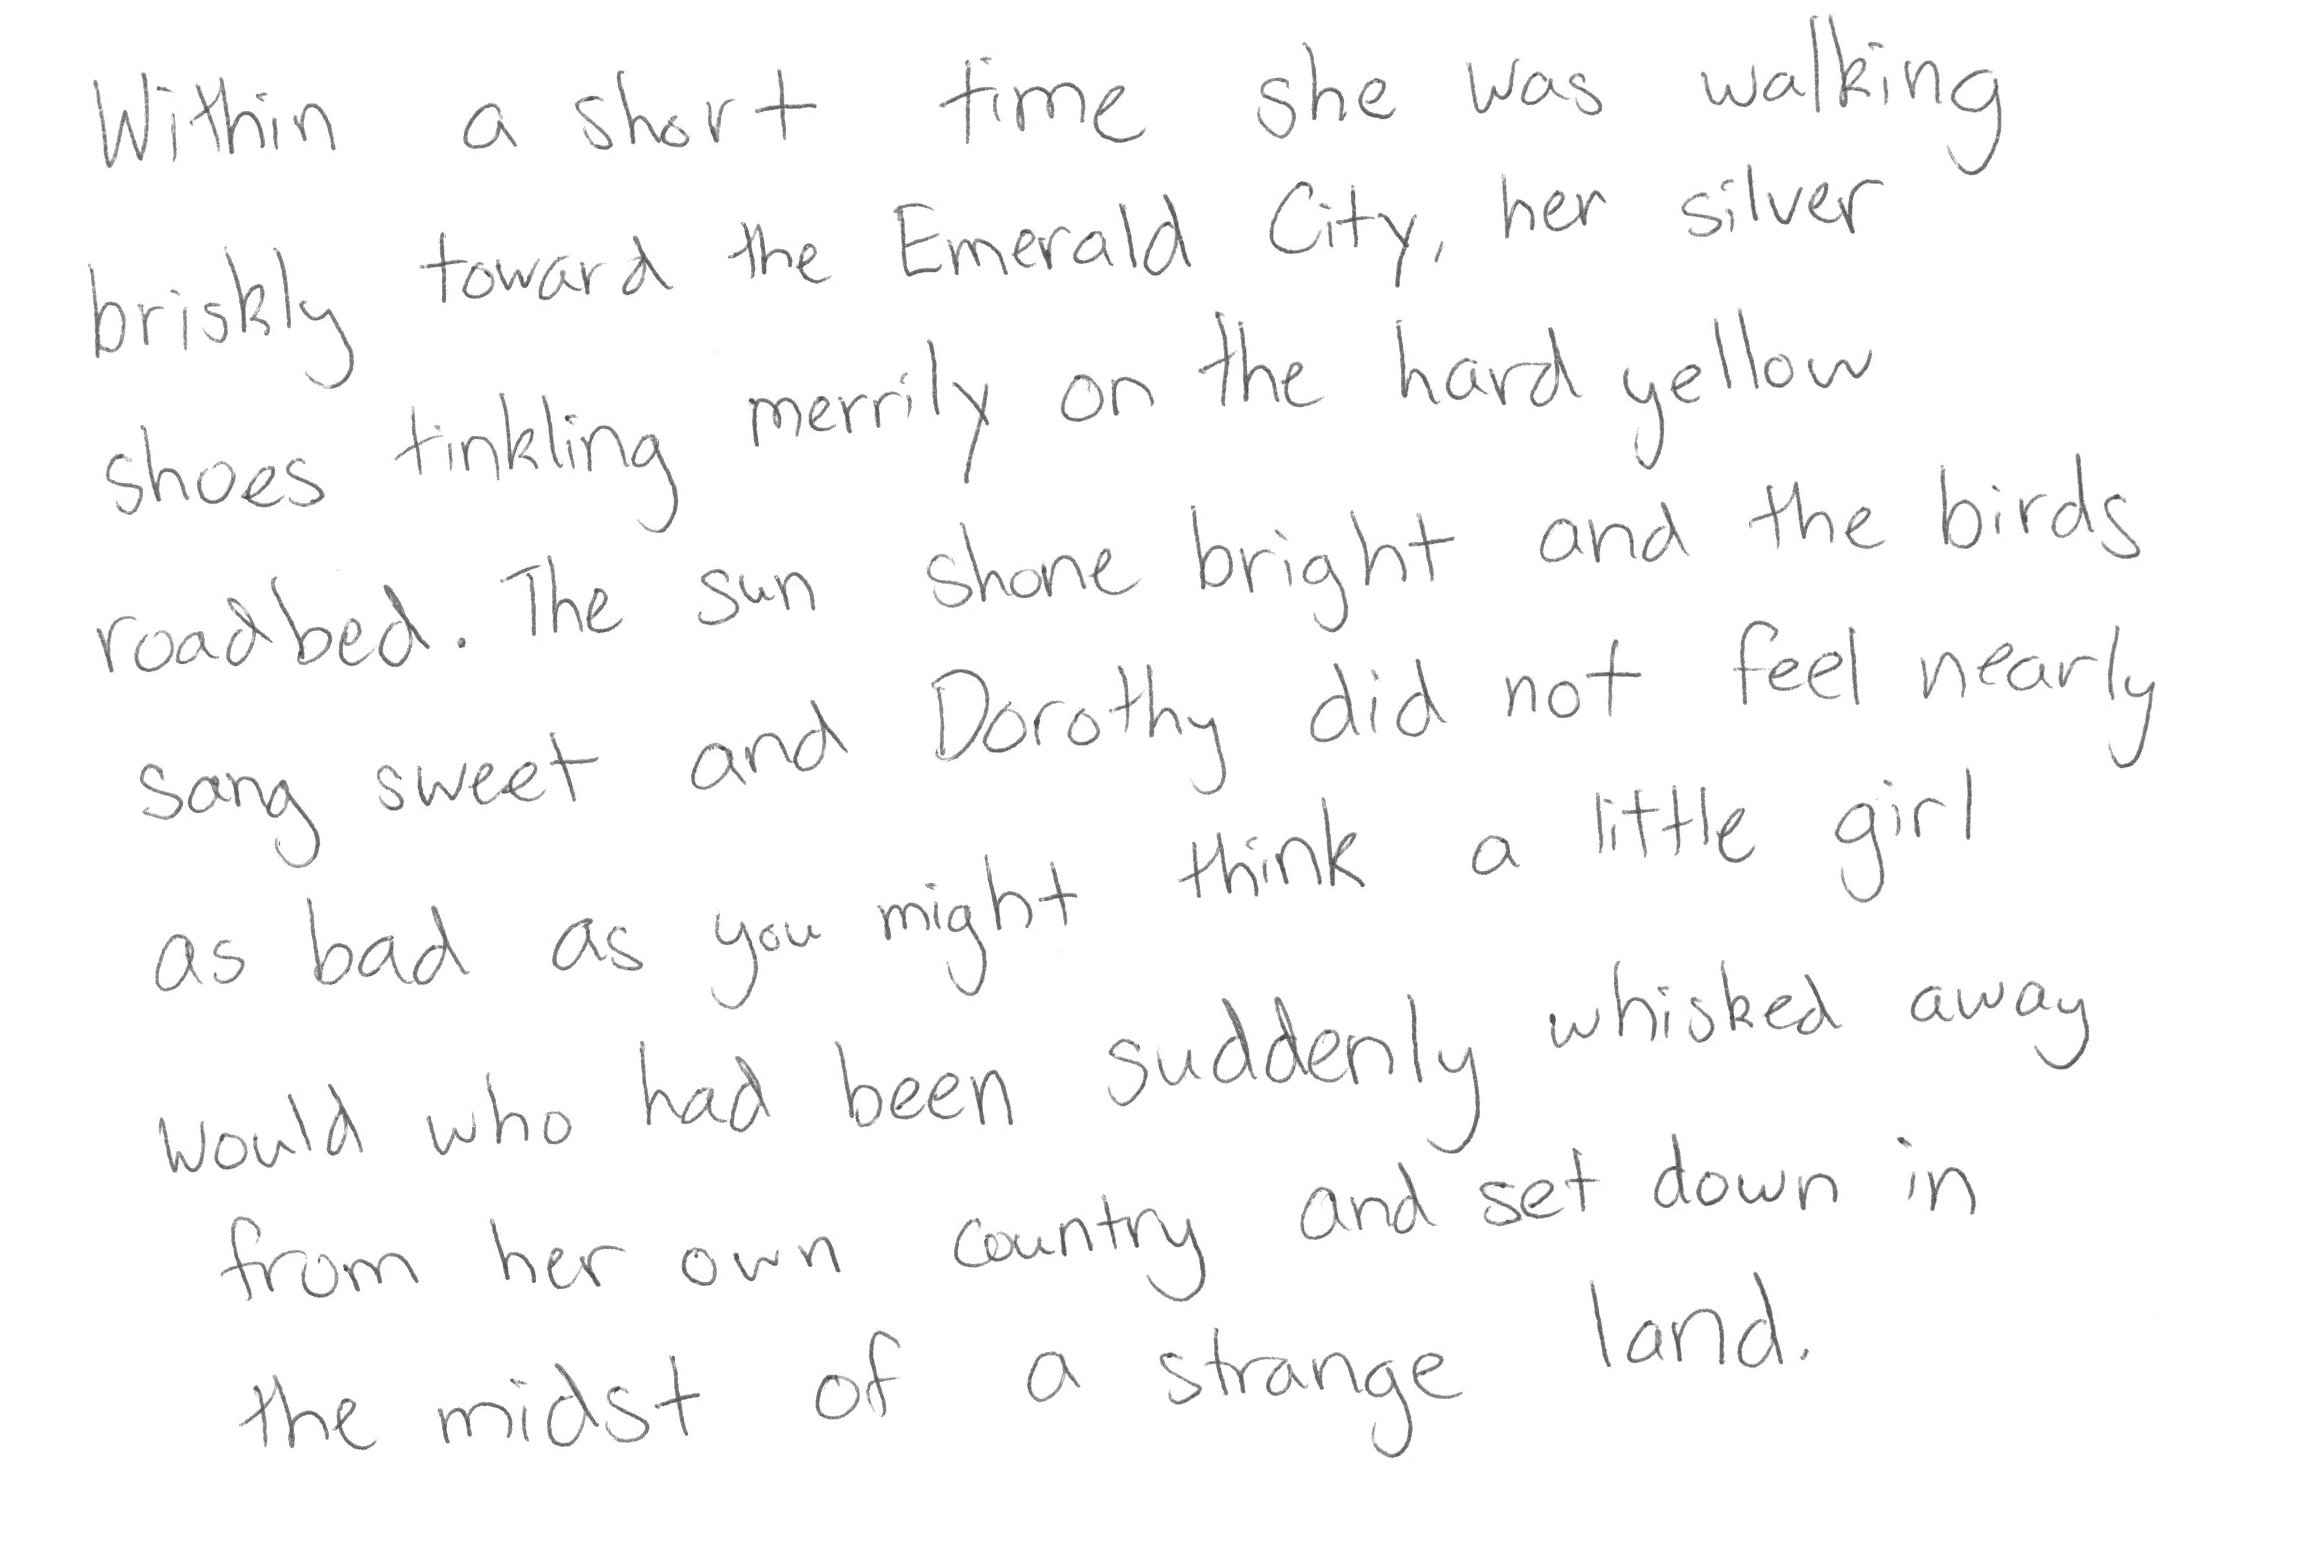 Within a short time she was walking
briskly toward the Emerald City, her silver
shoes tinkling merrily on the hard yellow
roadbed. The sun shone bright and the birds
sang sweet and Dorothy did not feel nearly
as bad as you might think a little girl
would who had been suddenly whisked away
from her own country and set down in
the midst of a strange land.